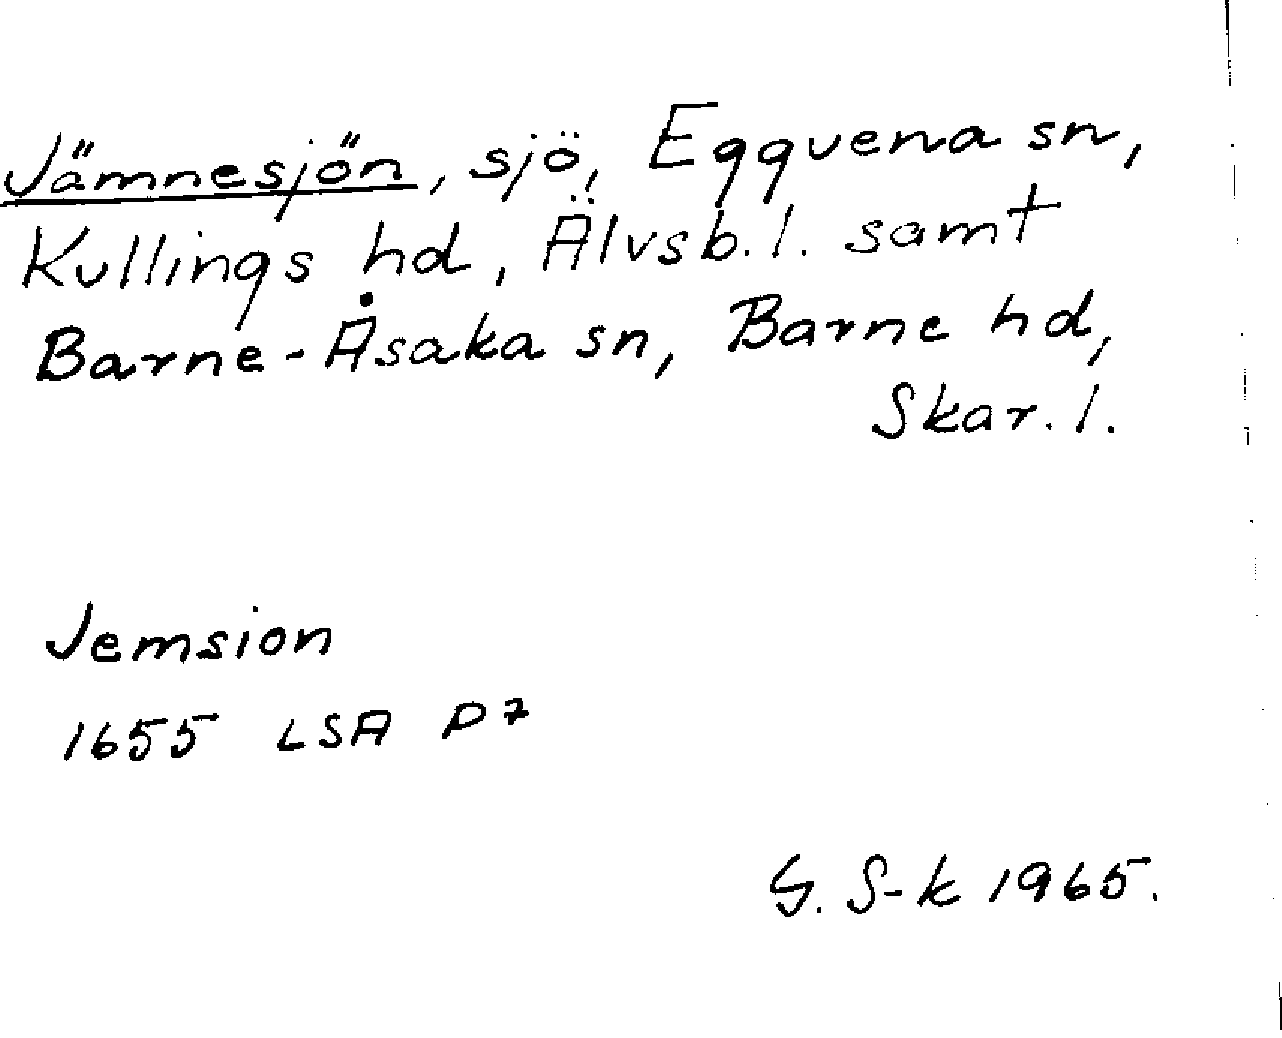 Jämnesjön, sjö, Eggvena sn,
Kullings hd, Älvsb. l. samt
Barne-Åsaka sn, Barne hd,
Skar. l.
Jemsion
1655 LSA P7
G. S-k 1965.